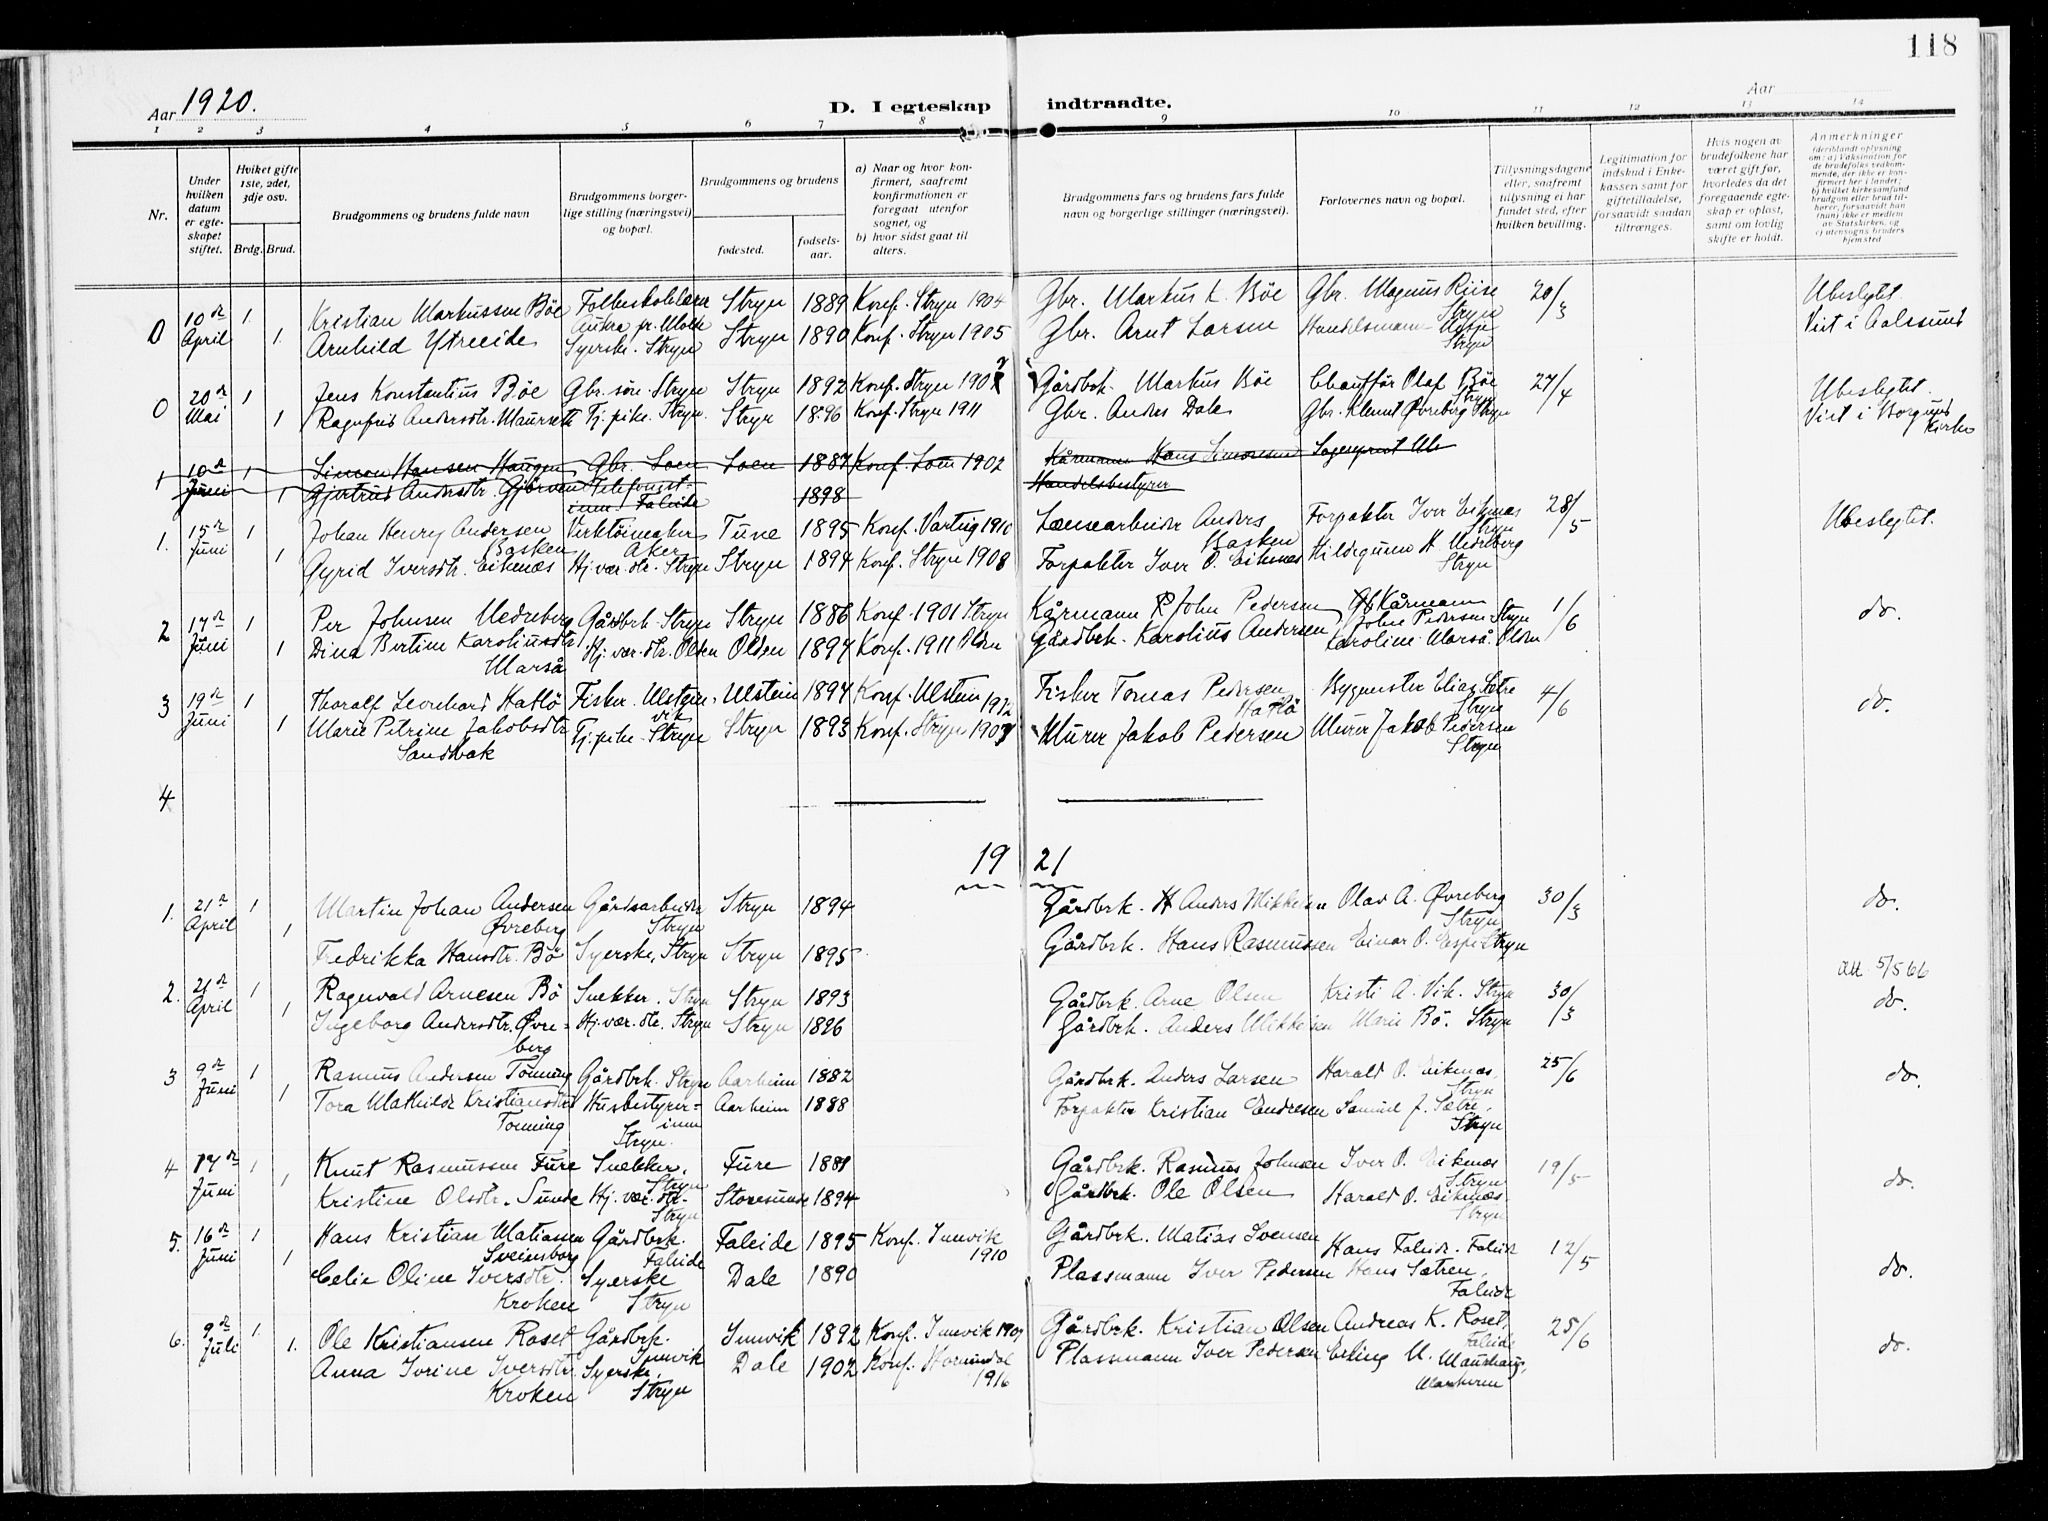 118
Aar 1920.
D. I egteskap indtraadte.
Aar
1 2 3 4 5 6 7 8 9 10 11 12 13 14
Nr.
Under hvilken datum er egteskapet stiftet.
Hvilket gifte 1ste, 2det, 3dje osv.
Brdg. Brud.
Brudgommens og brudens fulde navn
Brudgommens borgerlige stilling (næringsvei) og bopæl.
Brudgommens og brudens
fødested.
fødselsaar.
a) Naar og hvor konfirmert, saafremt konfirmationen er foregaat utenfor sognet, og
b) hvor sidst gaat til alters.
Brudgommens fars og brudens fars fulde navn og borgerlige stillinger (næringsvei).
Forlovernes navn og bopæl.
Tillysningsdagene eller, saafremt tillysning ei har fundet sted, efter hvilken bevilling.
Legitimation for indskud i Enkekassen samt for giftetilladelse, forsaavidt saadan tiltrænges.
Hvis nogen av brudefolkene har været gift før, hvorledes da det foregaaende egteskap er opløst, samt om lovlig skifte er holdt.
Anmerkninger (deriblandt oplysning om: a) Vaksination for de brudefolks vedkommende, der ikke er konfirmert her i landet; b) hvilket kirkesamfund brudgom eller brud tilhører, forsaavidt han (hun) ikke er medlem av Statskirken, og c) utensogns bruders hjemsted
0 10de April 1 Kristian Markussen Böe Folkeskolelærer Aukra pr. Molde Stryn 1889 Konf. Stryn 1904 Gbr. Markus L. Böe Gbr. Magnus Riise Stryn 20/3 Ubeslegtet. Viet i Aalesund
1. Arnhild Ytreeide Syerske. Stryn Stryn 1890 Konf. Stryn 1905 Gbr. Arnt Larsen Handelsmann Stryn
0 20de Mai 1 Jens Konstantius Böe Gbr. sön. Stryn Stryn 1892 Konf. Stryn 1907 Gårdbrk. Markus Böe Chauffør Olaf Böe Stryn 27/4 Ubeslegtet. Viet i Borgund Kirke
1 Ragnfrid Andersdtr. Maurseth Tj. pike. Stryn. Stryn 1896 Konf. Stryn 1911 Gbr. Anders Dale Gbr. Klemt Øvreberg Stryn
1 10de Juni 1 Simon Hansen Haugen Gbr. Loen Loen 1887 Konf. Loen 1902 Kårmann Hans Simonsen
1 Gjertrud Andersdtr. Gjörven Telefonistinne. Faleide 1898 Handelsbestyrer
1. 15de Juni 1 Johan Henry Andersen Basken Verktöimaker Aker Tune 1895 Konf. Varteig 1910 Lænsearbeider Anders Basken Forpakter Iver Eikenæs Stryn 28/5 Ubeslegtet.
1 Gyrid Iversdtr. Eikenæs Hj. vær. dtr. Stryn Stryn 1894 Konf. Stryn 1908 Forpakter Iver O. Eikenæs Hildegunn H. Medreberg Stryn
2 17de Juni 1 Per Johnsen Nedreberg Gårdbrk. Stryn Stryn 1886 Konf. 1901 Stryn Kårmann John Pedersen Kårmann John Pedersen Stryn 1/6 do.
1 Dina Bertine Karoliusdtr. Marså Hj. vær. dtr. Olden Olden 1897 Konf. 1911 Olden Gårdbrk. Karolius Andersen Karoline Marså. Olden
3 19de Juni 1 Thoralf Leonhard Hatlö Fisker. Ulsteinvik Ulstein 1897 Konf. Ulstein 1912 Fisker Tomas Pedersen Hatlö Bygmester Elias Sætre Stryn 4/6 do.
1 Marie Petrine Jakobsdtr. Sandbak Tj. pike. Stryn Stryn 1893 Konf. Stryn 1907 Murer Jakob Pedersen Murer Jakob Pedersen Stryn
4
19 21
1. 21de April 1 Martin Johan Andersen Øvreberg Gårdsarbeider Stryn Stryn 1894 Gårdbrk. Anders Mikkelsen Olav A. Øvreberg Stryn 30/3 do.
1 Fredrikka Hansdtr. Bö Syerske, Stryn Stryn 1895 Gårdbrk. Hans Rasmussen Einar O. Espe Stryn
att 5/5 66
2. 21de April 1 Ragnvald Arnesen Bö Snekker. Stryn Stryn 1893 Gårdbrk. Arne Olsen Kristi A. Vik. Stryn 30/3 do.
1 Ingeborg Andersdtr. Øvreberg Hj. vær. dtr. Stryn Stryn 1896 Gårdbrk. Anders Mikkelsen Marie Bö. Stryn
3 9de Juni 1 Rasmus Andersen Tonning Gårdbrk. Stryn Aarheim 1882 Gårdbrk. Anders Larsen Harald O. Eikenæs. Stryn 25/6 do.
1 Tora Mathilde Kristiansdtr. Tonning Husbestyrerinne Stryn. Aarheim 1888 Forpakter Kristian Endresen Samuel J. Sætre. Stryn
4 14de Juni 1 Knut Rasmussen Fure Snekker. Stryn Fure 1889 Gårdbrk. Rasmus Johnsen Iver O. Eikenæs Stryn 19/5 do.
1 Kristine Olsdtr. Sunde Hj. vær. dtr. Stryn Storesunde 1894 Gårdbrk. Ole Olsen Harald O. Eikenæs. Stryn
5. 16de Juni 1 Hans Kristian Matiassen Sveinsborg Gårdbrk. Faleide Faleide 1895 Konf. Innvik 1910 Gårdbrk. Matias Svensen Hans Faleide. Faleide 12/5 do.
1 Celia Oline Iversdtr. Kroken Syerske Stryn Dale 1890 Plassmann Iver Pedersen Hans Sætren. Faleide
6. 9de Juli 1. Ole Kristiansen Roset Gårdbrk. Innvik Innvik 1892 Konf. Innvik 1907 Gårdbrk. Kristian Olsen Andreas K. Roset, Faleide 25/6 do.
1. Anna Ivrine Iversdtr. Kroken Syerske. Stryn Dale 1902 Konf. Hornindal 1916 Plassmann Iver Pedersen Erling M. Maurhaug.